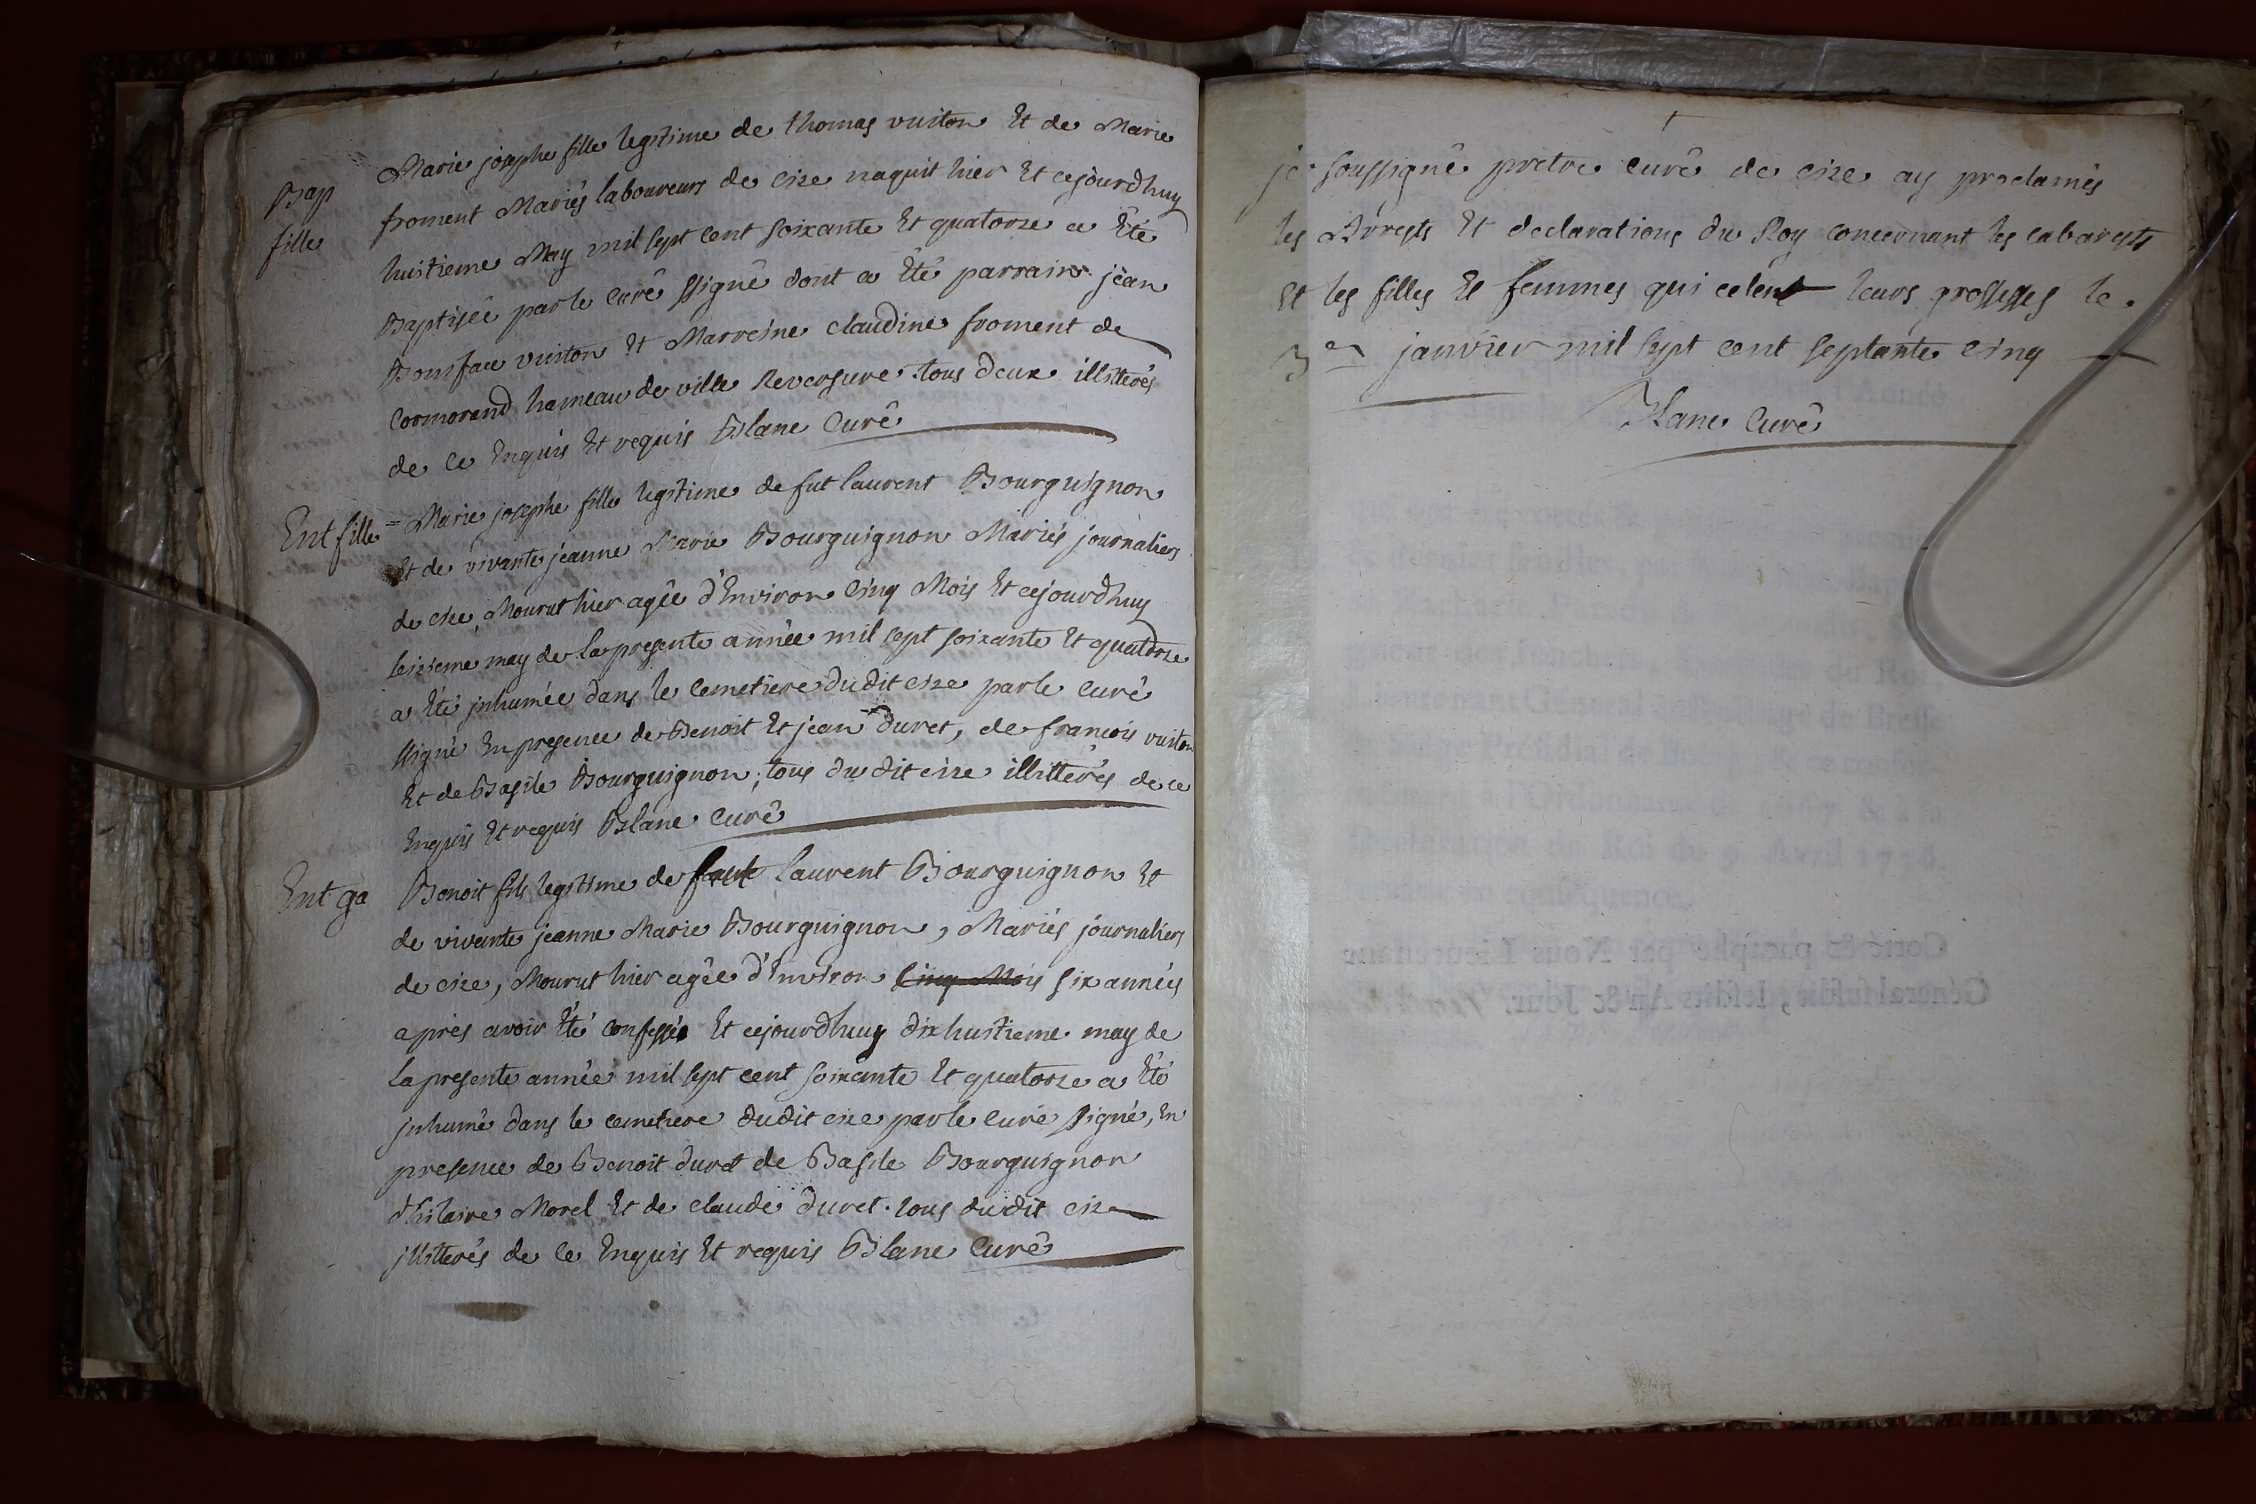 Bap
fille
Marie josephe fille legitime de thomas vuiton Et de Marie
froment Mariés laboureurs de cize naquit hier Et cejourdhuy
huitieme May mil sept cent soixante Et quatorze a Eté
Baptisée par le curé ssigné dont a Eté parrain jean
Boniface vuiton Et Marreine claudine froment de
Cormorend hameau de ville Reversure tous deux illitterés
de ce Enquis Et requis Blanc Curé
Ent fille = Marie josephe fille legitime de fut laurent Bourguignon
Et de vivante jeanne Marie Bourguignon Mariés journaliers
de cize, Mourut hier agée d'Environ Cinq Mois Et cejourdhuy
seizieme may de la presente année mil sept soixante Et quatorze
a Eté jnhumée dans le cemetiere dudit cize par le curé
ssigné En presence de Benoit Et jean Duret, de francois vuiton
Et de Basile Bourguignon; tous du dit cize illitterés de ce
Enquis Et requis Blanc Curé
Ent ga
Benoit fils legitime de laurent Bourguignon Et
de vivante jeanne Marie Bourguignon, Mariés journaliers
de cize, Mourut hier agée d'Environ Cinq Mois six années
après avoir Eté confessé Et cejourdhuy dix huitieme may de
la presente année mil sept cent soixante Et quatorze a Eté
jnhumé dans le cemetiere dudit cize par le curé ssigné, En
presence de Benoit duret de Basile Bourguignon
d'hilaire Morel Et de claude duret. tous dudit cize
jllitterés de ce Enquis Et requis Blanc Curé
je soussigné pretre curé de cize ay proclamés
les Arrests Et declarations du Roy concernant les cabarests
Et les filles Et femmes qui celent leurs grossesses le.
janvier mil sept cent septante cinq
Blanc Curé
Cotté & paraphé par Nous Lieutenant
Général susdit, lesdits An & Jour.